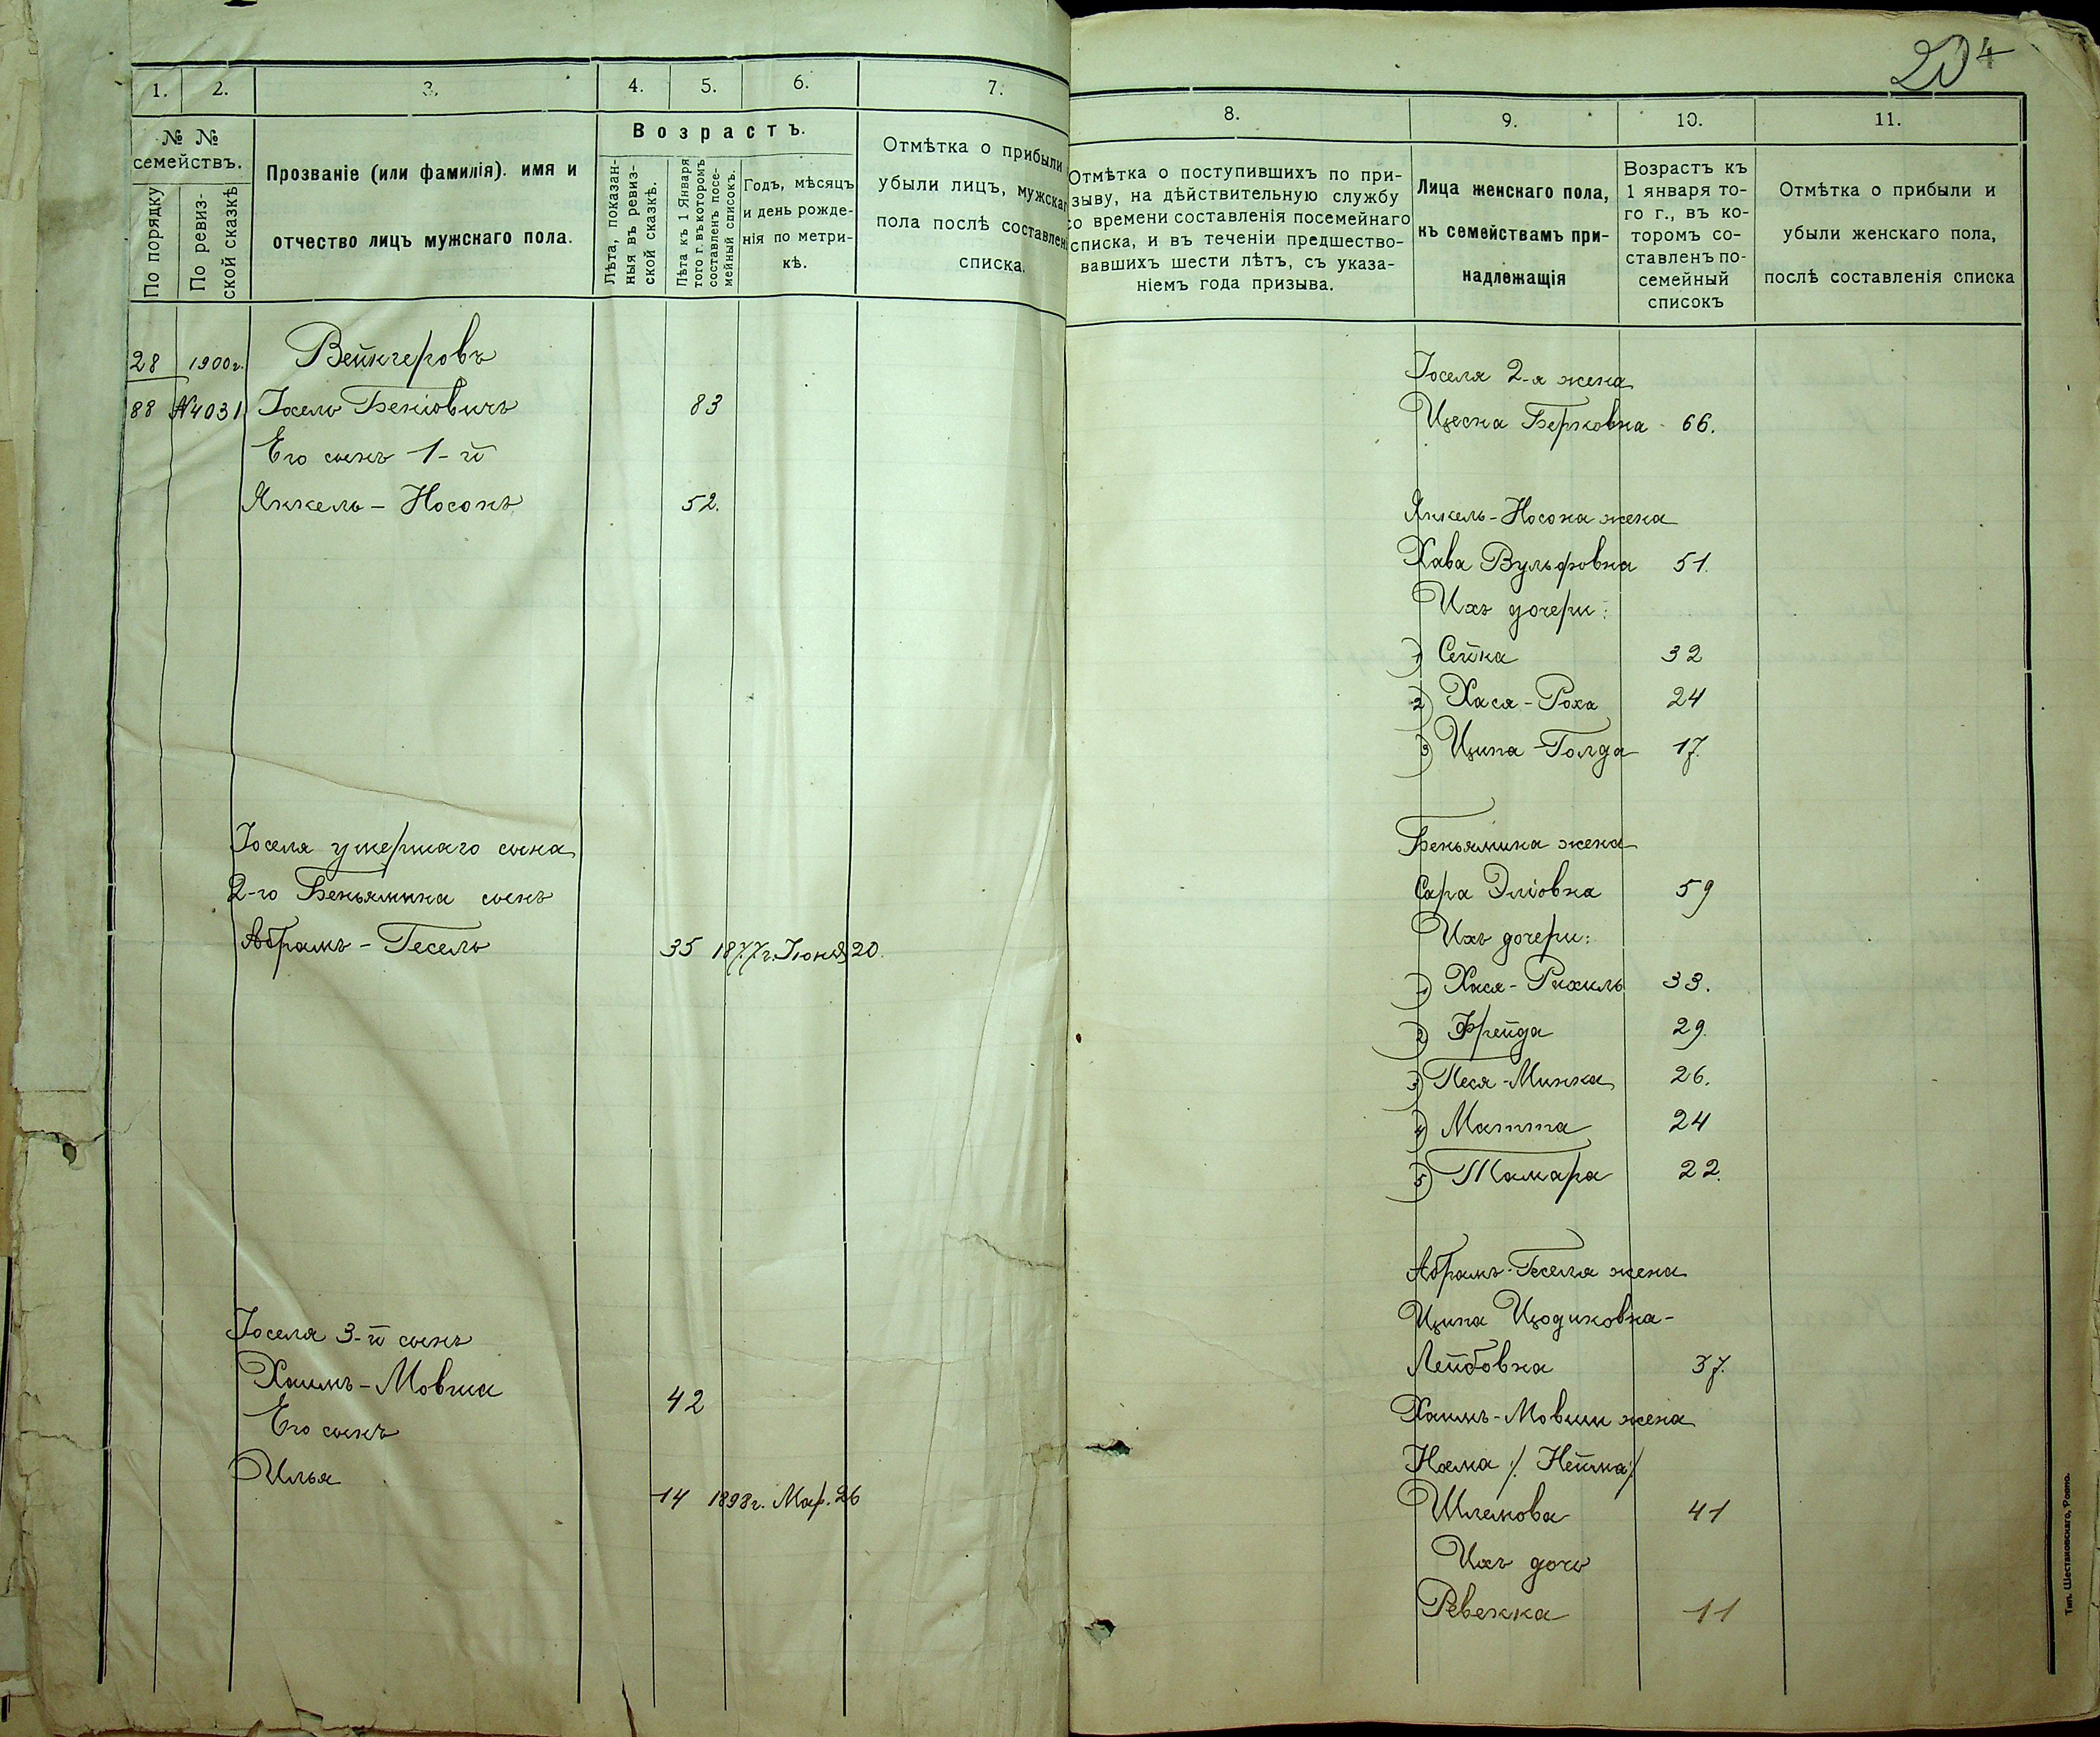 204
1. 2. 3. 4. 5. 6. 7.
№ № семействъ.
По порядку
По ревиз-
ской сказкѣ
Прозваніе (или фамилія). имя и
отчество лицъ мужскаго пола.
Возрастъ.
Лѣта, показан-
ныя въ ревиз-
ской сказкѣ.
Лѣта къ 1 Января
того г. въ которомъ
составленъ посе-
мейный списокъ.
Годъ, мѣсяцъ
и день рожде-
нія по метри-
кѣ.
Отмѣтка о прибыли
убыли лицъ, мужскаг
пола послѣ составлен
списка.
28 1900г. Вейнгеровъ
88 №4031 Іосель Беніовичъ 83
Его сынъ 1-й
Янкель-Носонъ 52.
Іоселя умершаго сына
2-го Беньямина сынъ
Абрамъ-Гесель 35 1877г. Іюня 20.
Іоселя 3-й сынъ
Хаимъ-Мовша 42
Его сынъ
Илья 14 1898г. Мар. 26
8. 9. 10. 11.
Отмѣтка о поступившихъ по при-
зыву, на дѣйствительную службу
со времени составленія посемейнаго
списка, и въ теченіи предшество-
вавшихъ шести лѣтъ, съ указа-
ніемъ года призыва.
Лица женскаго пола,
къ семействамъ при-
надлежащія
Возрастъ къ
1 января то-
го г., въ ко-
торомъ со-
ставленъ по-
семейный
списокъ
Отмѣтка о прибыли и
убыли женскаго пола,
послѣ составленія списка
Іоселя 2-я жена
Цесна Берковна 66.
Янкель-Носона жена
Хава Вульфовна 51.
Ихъ дочери:
1) Сейна 32
2) Хася-Роха 24
3) Ципа-Голда 17.
Беньямина жена
Сара Эліовна 59
Ихъ дочери:
1) Хися-Рихиль 33.
2) Фрейда 29.
3) Песя-Минка 26.
4) Матта 24
5) Тамара 22.
Абрамъ-Геселя жена
Ципа Цодиковна-
Лейбовна 37.
Хаимъ-Мовши жена
Нома /. Нейма/
Шлемова 41
Ихъ дочь
Ревекка 11
Тип. Шестаковскаго, Ровно.